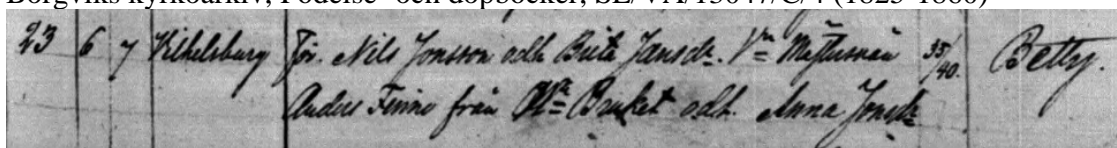 Borgviks kyrkoarkiv, Födelse- och dopböcker, SE/VA/13047/C/4 (1823-1860)
23 6 7 Wilhelsburg För. Nils Jonsson och Brita Jansdr. Vn 35/40. Betty.
Anders Finne från Bruket och. Anna Jonsdr